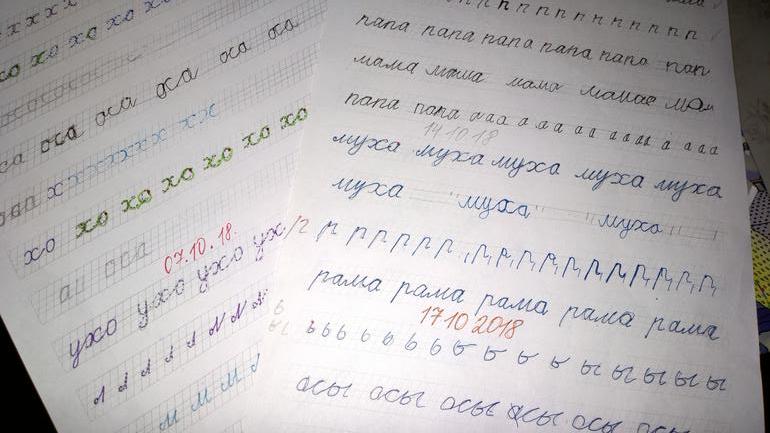 х х х х
хо хо хо хо хо
оса оса оса оса оса
х х х х х х х х х
хо хо хо хо хо хо
07.10.18.
ухо ухо ухо ухо ух
л л л л л л л л
м м м м
п п п п п п п п п п п
папа папа папа папа папа пап
мама мама мама мама мам
папа папа а а а а а а а а а а а а а а
14 10 18
муха муха муха муха муха
муха "муха" "муха"
р р р р р р р р р р р р р р р р
рама рама рама рама рама
17 10 2018
ь ь ь ь ь ь ь ь ь ь ы ы ы ы ы
осы осы осы осы осы осы